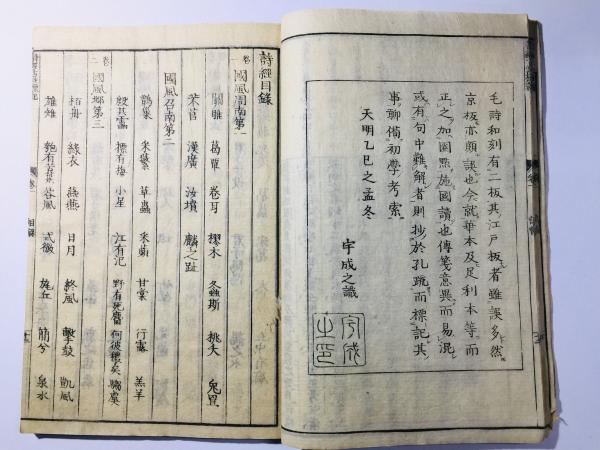 毛詩和刻有二板其江戸板者雖誤多然
京板亦頗誤也今就華本及足利本等而
正之加圏點施國讀也傳箋意異而易混
或有句中難解者則抄於孔疏而標記其
事聊備初學考索
天明乙巳之孟冬
宇成之識
宇成之印
詩經目錄
卷一
國風周南第一
關雎 葛覃 卷耳 樛木 螽斯 桃夭 兔罝
芣苢 漢廣 汝墳 麟之趾
國風召南第二
鵲巢 采蘩 草蟲 采蘋 甘棠 行露 羔羊
殷其靁 摽有梅 小星 江有汜 野有死麕 何彼襛矣 騶虞
卷二
國風邶第三
栢舟 綠衣 燕燕 日月 終風 擊鼓 凱風
雄雉 匏有苦葉 谷風 式微 旄丘 簡兮 泉水